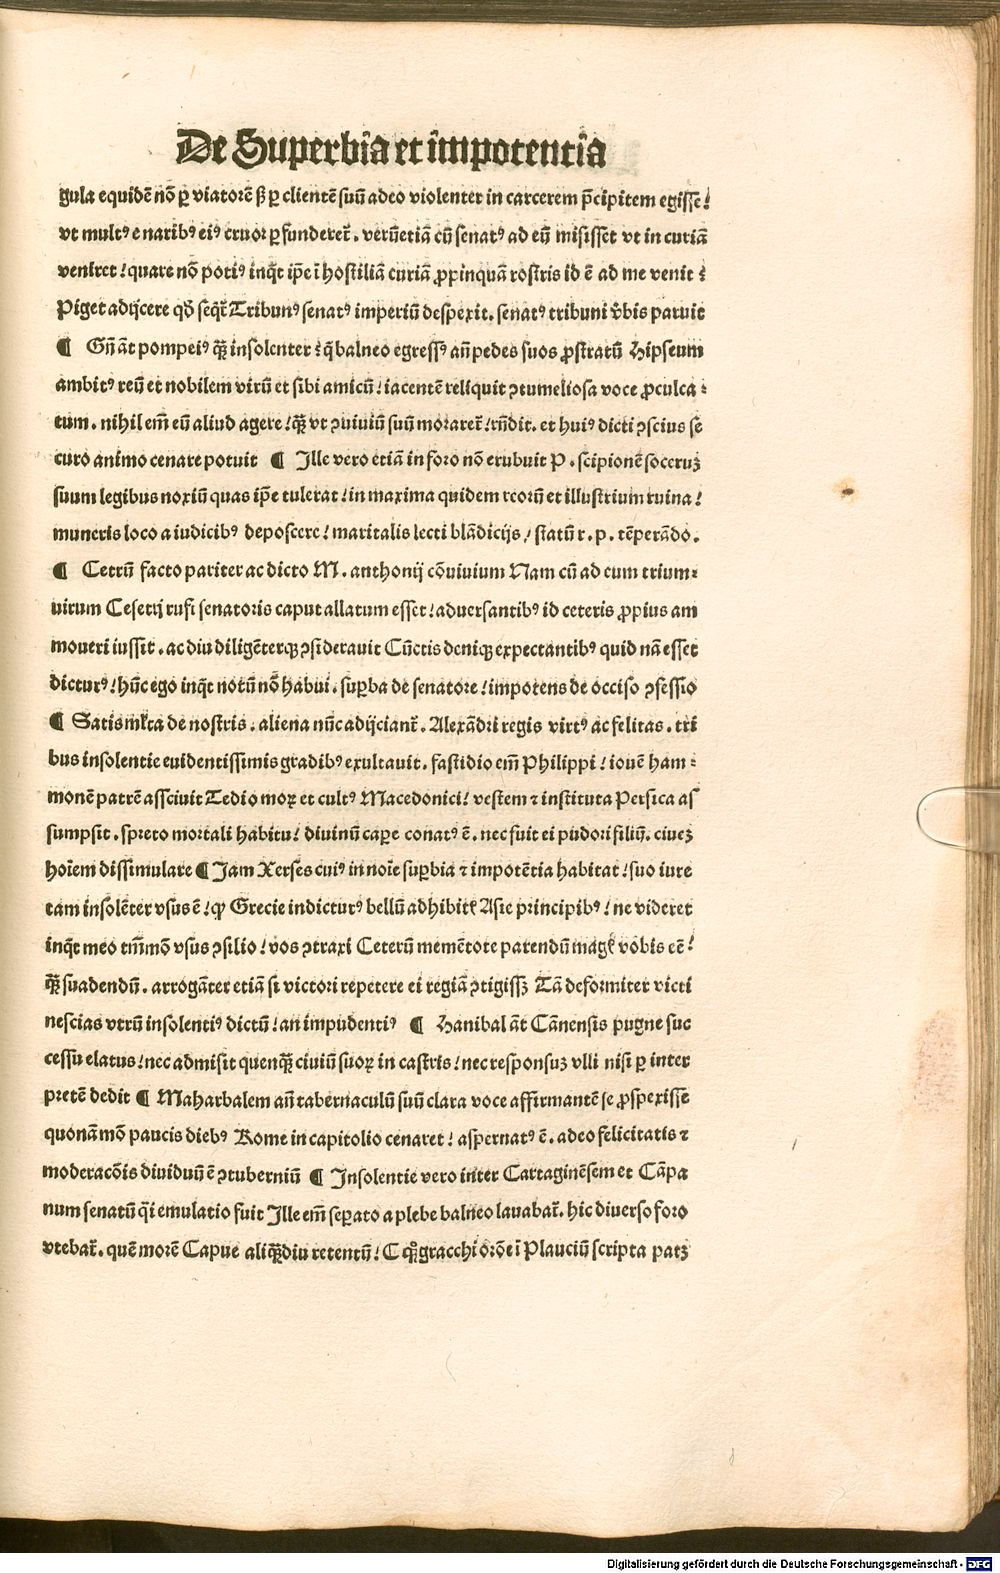 De Superbia et impotentia
gula equidē nō ꝑ viatorē ß ꝑ clientē suū adeo violenter in carcerem p̄cipitem egisse!
vt multꝰ e naribꝰ eiꝰ cruor ꝑfunderet᷑. verūetiā cū senatꝰ ad eū misisset vt in curiā
veniret! quare nō potiꝰ inq̄t ip̄e ī hostiliā curiā ꝓpinquā rostris id ē ad me venit?
Piget adijcere qd̄ seqt᷑ Tribunꝰ senatꝰ imperiū despexit. senatꝰ tribuni v̄bis paruit
¶ Gn̄ āt pompeiꝰ qꝫ̄ insolenter? q̄ balneo egressꝰ an̄ pedes suos ꝓstratū Hipseum
ambitꝰ reū et nobilem virū et sibi amicū! iacentē reliquit ꝯtumeliosa voce ꝓculca⸗
tum. nihil em̄ eū aliud agere! qꝫ̄ vt ꝯuiuiū suū moraret᷑! rn̄dit. et huiꝰ dicti ꝯscius se
curo animo cenare potuit ¶ Ille vero etiā in foro nō erubuit P. scipionē soceruꝫ
suum legibus noxiū quas ip̄e tulerat! in maxima quidem reorū et illustrium ruina!
muneris loco a iudicibꝰ deposcere! maritalis lecti blādicijs! statū r. p. tēperādo.
¶ Cetrū facto pariter ac dicto M. anthonij cōuiuium Nam cū ad eum trium⸗
uirum Cesetij rufi senatoris caput allatum esset! aduersantibꝰ id ceteris ꝓpius am
moueri iussit. ac diu diligēterqꝫ ꝯsiderauit Cūctis deniqꝫ expectantibꝰ quid nā esset
dicturꝰ! hūc ego inq̄t notū nō habui. suꝑba de senatore! impotens de occiso ꝯfessio
¶ Satis ml̄ta de nostris. aliena nūc adijciant᷑. Alexādri regis virtꝰ ac felitas. tri
bus insolentie euidentissimis gradibꝰ exultauit. fastidio em̄ Philippi! iouē ham⸗
monē patrē assciuit Tedio moꝝ et cultꝰ Macedonici! vestem ⁊ instituta Persica as
sumpsit. spreto mortali habitu! diuinū caꝑe conatꝰ ē. nec fuit ei pudori filiū. ciueꝫ
hoīem dissimulare ¶ Jam Xerses cuiꝰ in noīe suꝑbia ⁊ impotētia habitat! suo iure
tam insolēter vsus ē! ꝙ Grecie indicturꝰ bellū adhibitꝭ Asie principibꝰ! ne videret
inq̄t meo tm̄mō vsus ꝯsilio! vos ꝯtraxi Ceterū memētote parendū magꝭ vobis eē!
qꝫ̄ suadendū. arrogāter etiā si victori repetere ei regiā ꝯtigissꝫ Tā deformiter victi
nescias vtrū insolentiꝰ dictū! an impudentiꝰ ¶ Hanibal āt Cānensis pugne suc
cessu elatus! nec admisit quenqꝫ̄ ciuiū suoꝝ in castris! nec responsuꝫ vlli nisi ꝑ inter
pretē dedit ¶ Maharbalem an̄ tabernaculū suū clara voce affirmantē se ꝓspexisse
quonā mō paucis diebꝰ Rome in capitolio cenaret! aspernatꝰ ē. adeo felicitatis ⁊
moderacōis diuiduū ē ꝯtuberniū ¶ Insolentie vero inter Cartaginēsem et Cāpa
num senatū q̄i emulatio fuit Ille em̄ seꝑato a plebe balneo lauabat᷑. hic diuerso foro
vtebat᷑. quē morē Capue aliqꝫ̄diu retentū! C qꝫ gracchi orōe ī Plauciū scripta patꝫ
Digitalisierung gefördert durch die Deutsche Forschungsgemeinschaft - DFG